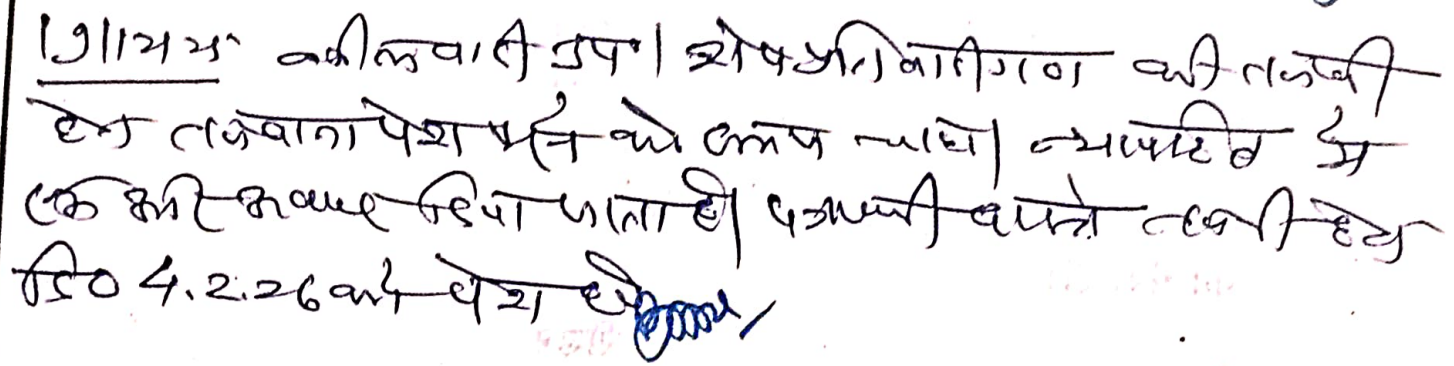 वकील वादी उप। शेष प्रतिवादीगण की तलबी
हेतु तलवाना पेश करने को समय चाहा। न्यायहित में
एक और अवसर दिया जाता है। पत्रावली वास्ते तलबी हेतु
दि० 4.2.26 को पेश हो